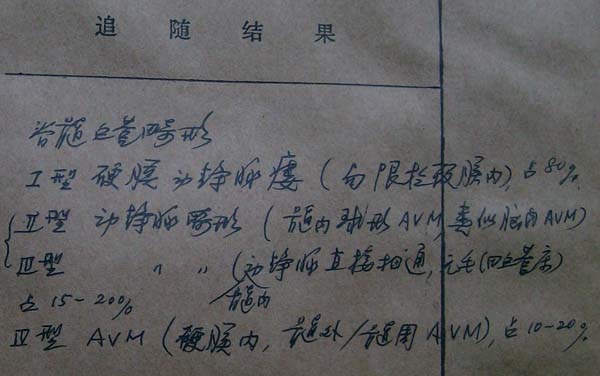 追随结果
脊髓血管畸形
I型 硬膜动静脉瘘（局限於硬膜内），占80%.
II型 动静脉畸形（髓内球形AVM，类似脑内AVM）
III型 〃 〃（动静脉直接相通，无毛细血管床）
髓内
占15-20%
IV型 AVM（硬膜内，髓外/髓周AVM），占10-20%.